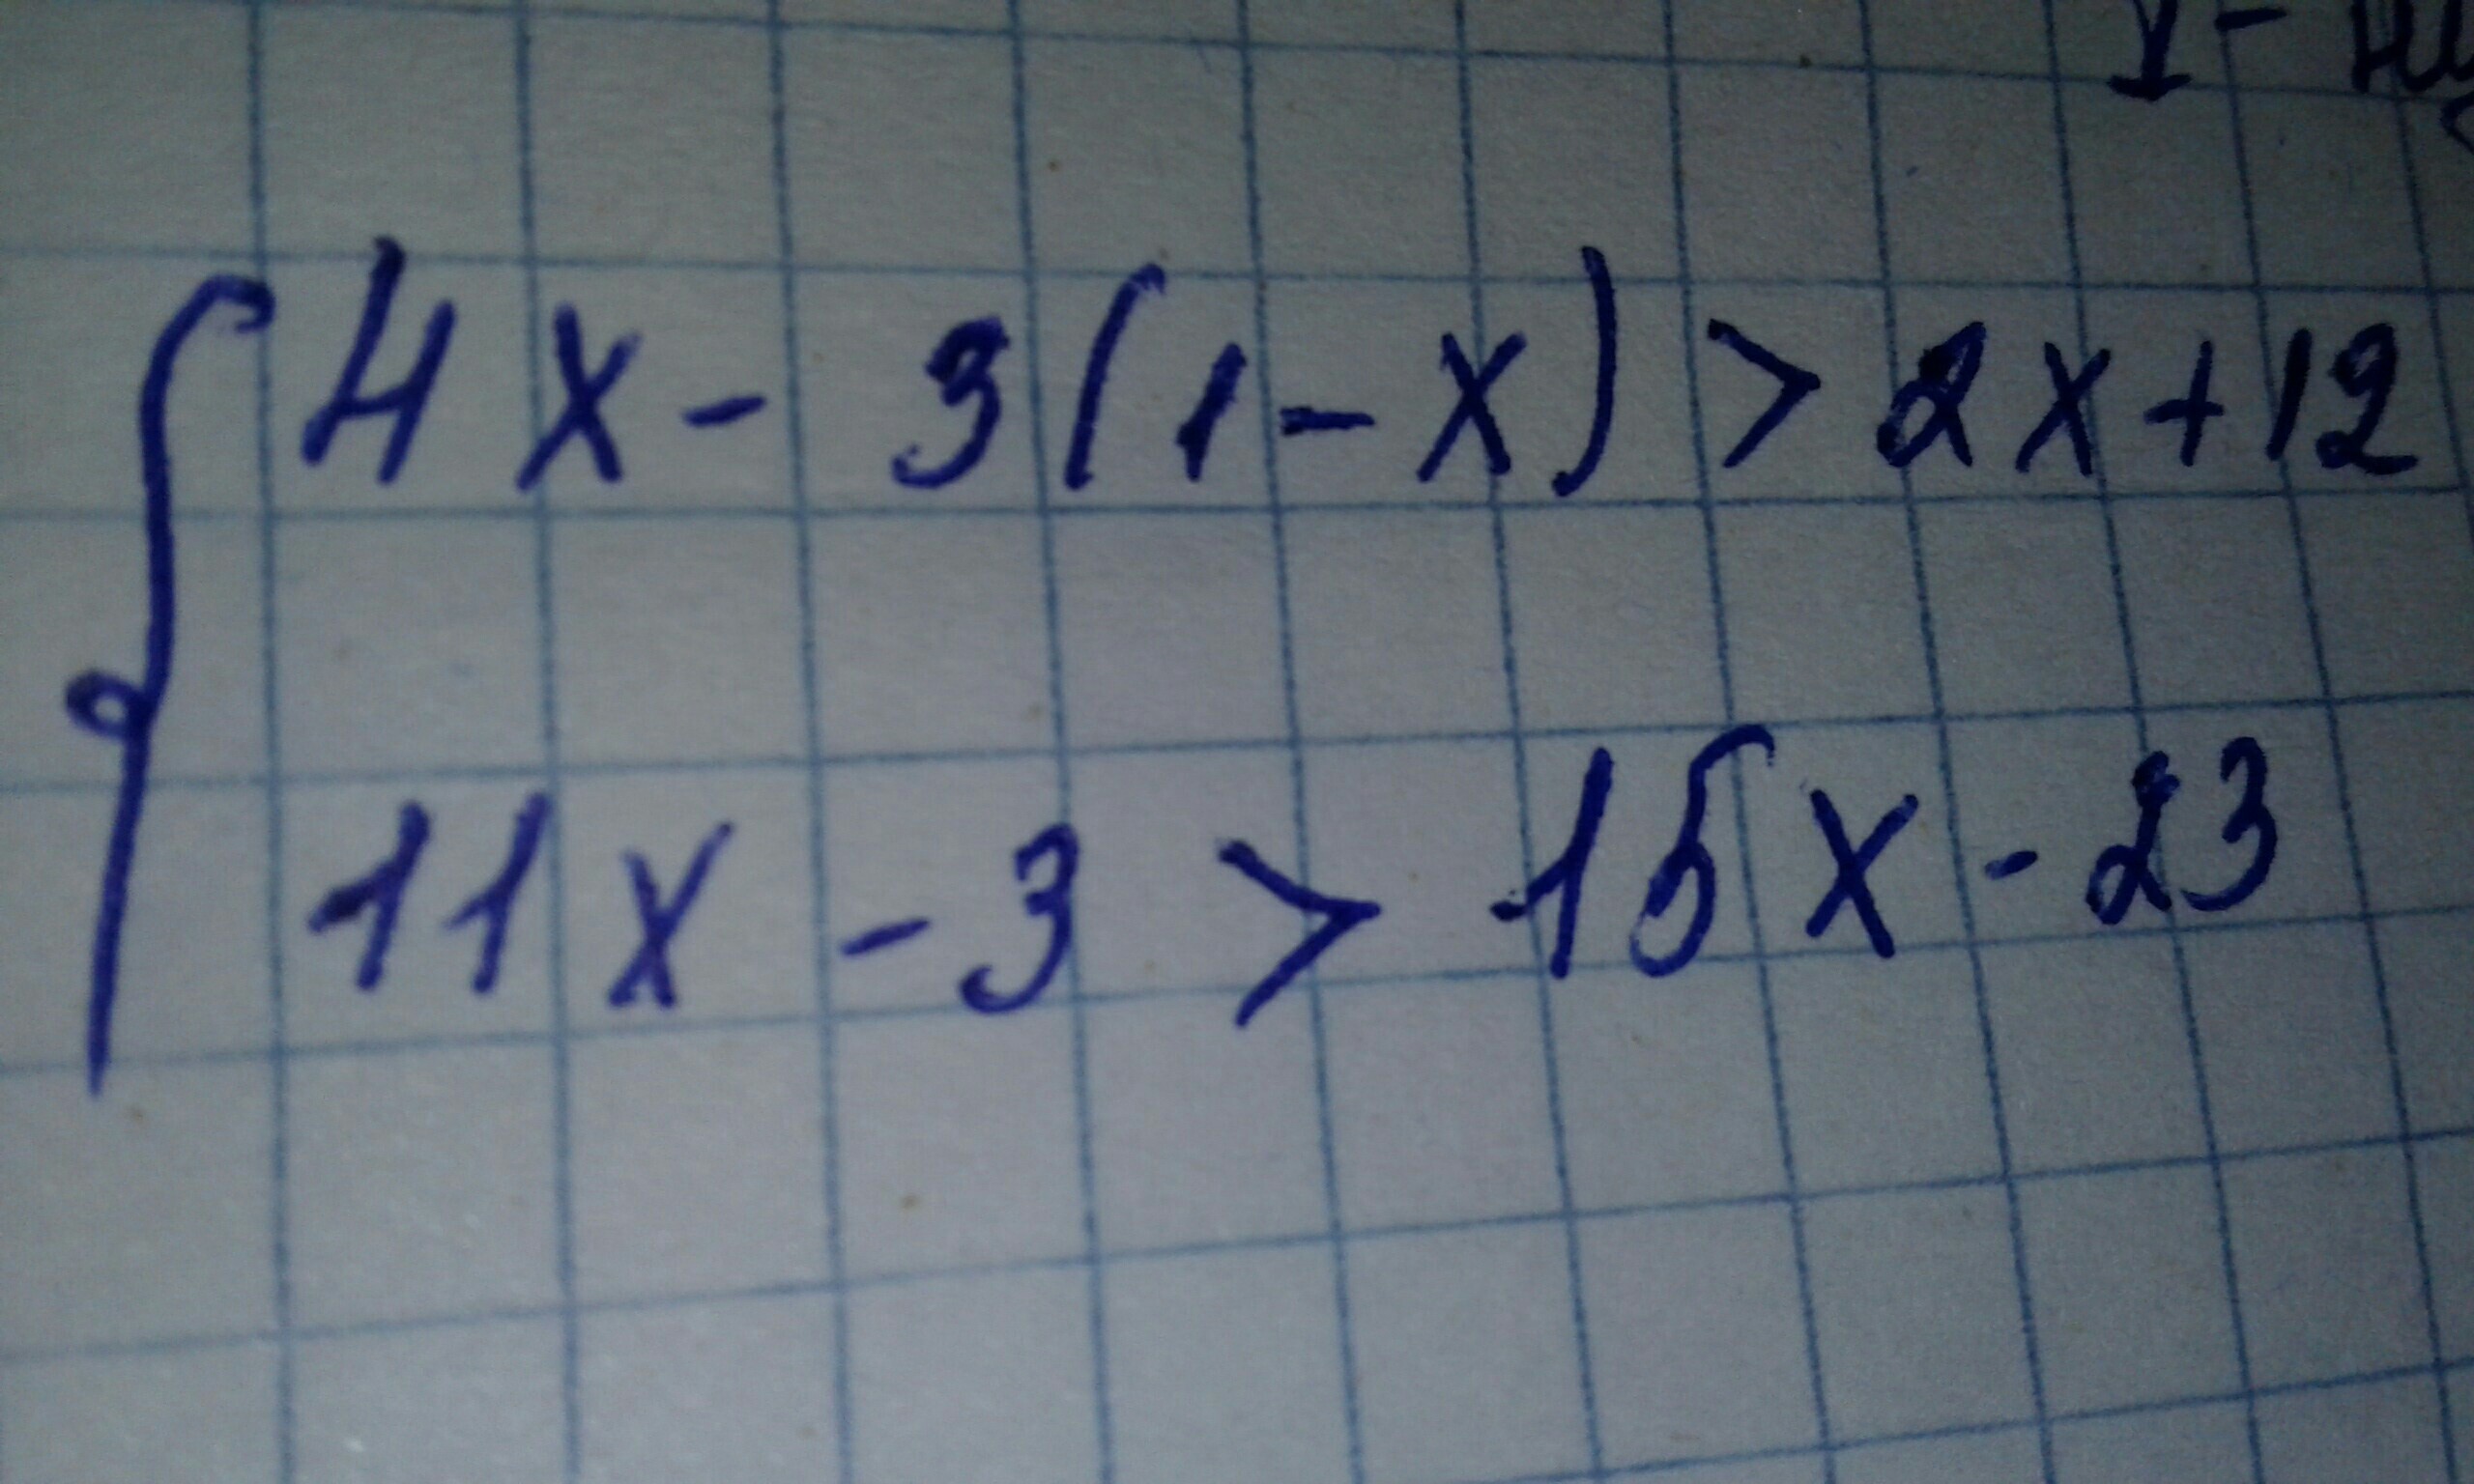 4x - 3(1-x) > 2x+12
11x - 3 > 15x - 23